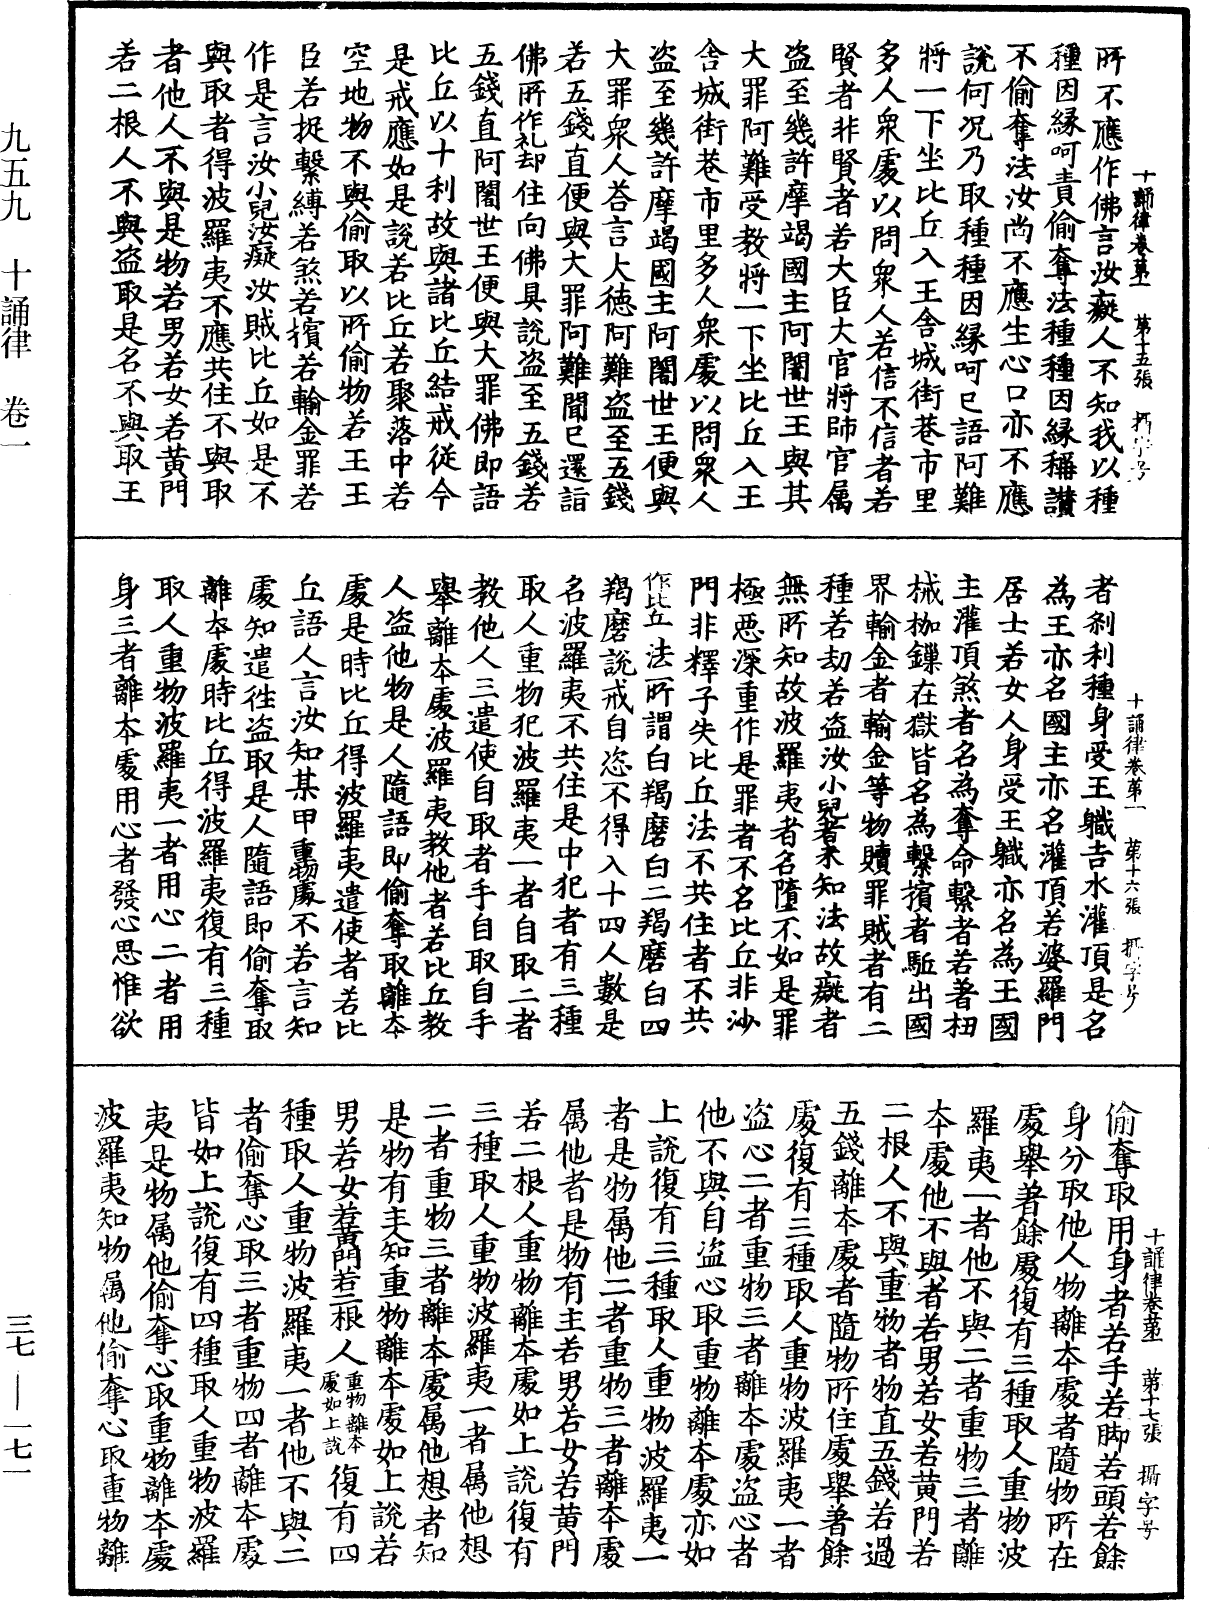 十誦律卷第一　第十五張　摲字号
所不應作佛言汝癡人不知我以種
種因緣呵責偷奪法種種因緣稱讃
不偷奪法汝尚不應生心口亦不應
說何況乃取種種因緣呵已語阿難
將一下坐比丘入王舍城街巷市里
多人衆處以問衆人若信不信者若
賢者非賢者若大臣大官將師官属
盜至幾許摩竭國主阿闍世王與其
大罪阿難受教將一下坐比丘入王
舍城街巷市里多人衆處以問衆人
盜至幾許摩竭國主阿闍世王便與
大罪衆人荅言大德阿難盜至五錢
若五錢直便與大罪阿難聞已還詣
佛所作礼却住向佛具說盜至五錢若
五錢直阿闍世王便與大罪佛即語
比丘以十利故與諸比丘結戒從今
是戒應如是說若比丘若聚落中若
空地物不與偷取以所偷物若王王
臣若捉繫縛若煞若擯若輸金罪若
作是言汝小兒汝癡汝賊比丘如是不
與取者得波羅夷不應共住不與取
者他人不與是物若男若女若黄門
若二根人不與盜取是名不與取王
十誦律卷第一　第十六張　摲字号
者刹利種身受王軄吉水灌頂是名
為王亦名國主亦名灌頂若婆羅門
居士若女人身受王軄亦名為王國
主灌頂煞者名為奪命繫者若著杻
械枷鏁在獄皆名為繫擯者駈出國
界輸金者輸金等物贖罪賊者有二
種若劫若盜汝小兒者不知法故癡者
無所知故波羅夷者名墮不如是罪
極惡深重作是罪者不名比丘非沙
門非釋子失比丘法不共住者不共
作比丘法所謂白羯磨白二羯磨白四
羯磨說戒自恣不得入十四人數是
名波羅夷不共住是中犯者有三種
取人重物犯波羅夷一者自取二者
教他人三遣使自取者手自取自手
舉離本處波羅夷教他者若比丘教
人盜他物是人隨語即偷奪取離本
處是時比丘得波羅夷遣使者若比
丘語人言汝知某甲重物處不若言知
處知遣往盜取是人隨語即偷奪取
離本處時比丘得波羅夷復有三種
取人重物波羅夷一者用心二者用
身三者離本處用心者發心思惟欲
十誦律卷第一　第十七張　摲字号
偷奪取用身者若手若脚若頭若餘
身分取他人物離本處者隨物所在
處舉著餘處復有三種取人重物波
羅夷一者他不與二者重物三者離
本處他不與者若男若女若黄門若
二根人不與重物者物直五錢若過
五錢離本處者隨物所住處舉著餘
處復有三種取人重物波羅夷一者
盜心二者重物三者離本處盜心者
他不與自盜心取重物離本處亦如
上說復有三種取人重物波羅夷一
者是物属他二者重物三者離本處
属他者是物有主若男若女若黄門
若二根人重物離本處如上說復有
三種取人重物波羅夷一者属他想
二者重物三者離本處属他想者知
是物有主知重物離本處如上說若
男若女若黄門若二根人重物離本處如上說復有四
種取人重物波羅夷一者他不與二
者偷奪心取三者重物四者離本處
皆如上說復有四種取人重物波羅
夷是物属他偷奪心取重物離本處
波羅夷知物属他偷奪心取重物離
九五九　十誦律　卷一
三七——一七一